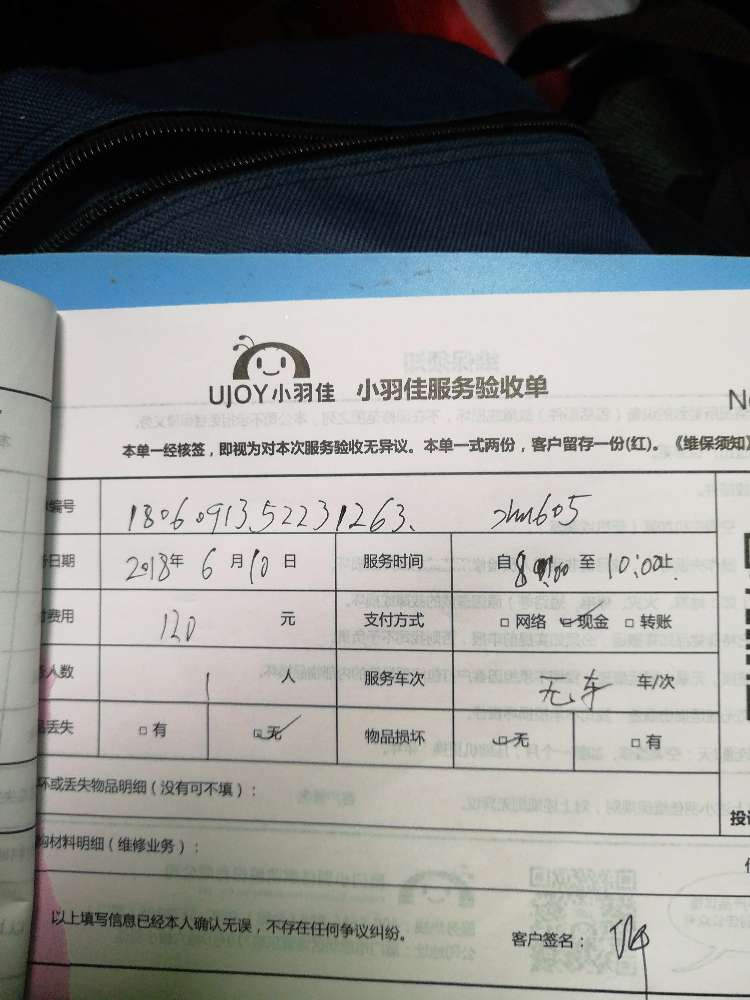 UJOY小羽佳 小羽佳服务验收单
本单一经核签，即视为对本次服务验收无异议。本单一式两份，客户留存一份(红)。《维保须知》
编号 18060913.52231263.
日期 2018年 6 月 10 日 服务时间 自 至 10:00止
费用 120 元 支付方式 □网络 □现金 □转账
人数 1 人 服务车次 无车 车/次
丢失 □有 □无 物品损坏 □无 □有
坏或丢失物品明细（没有可不填）：
购材料明细（维修业务）：
以上填写信息已经本人确认无误，不存在任何争议纠纷。 客户签名：